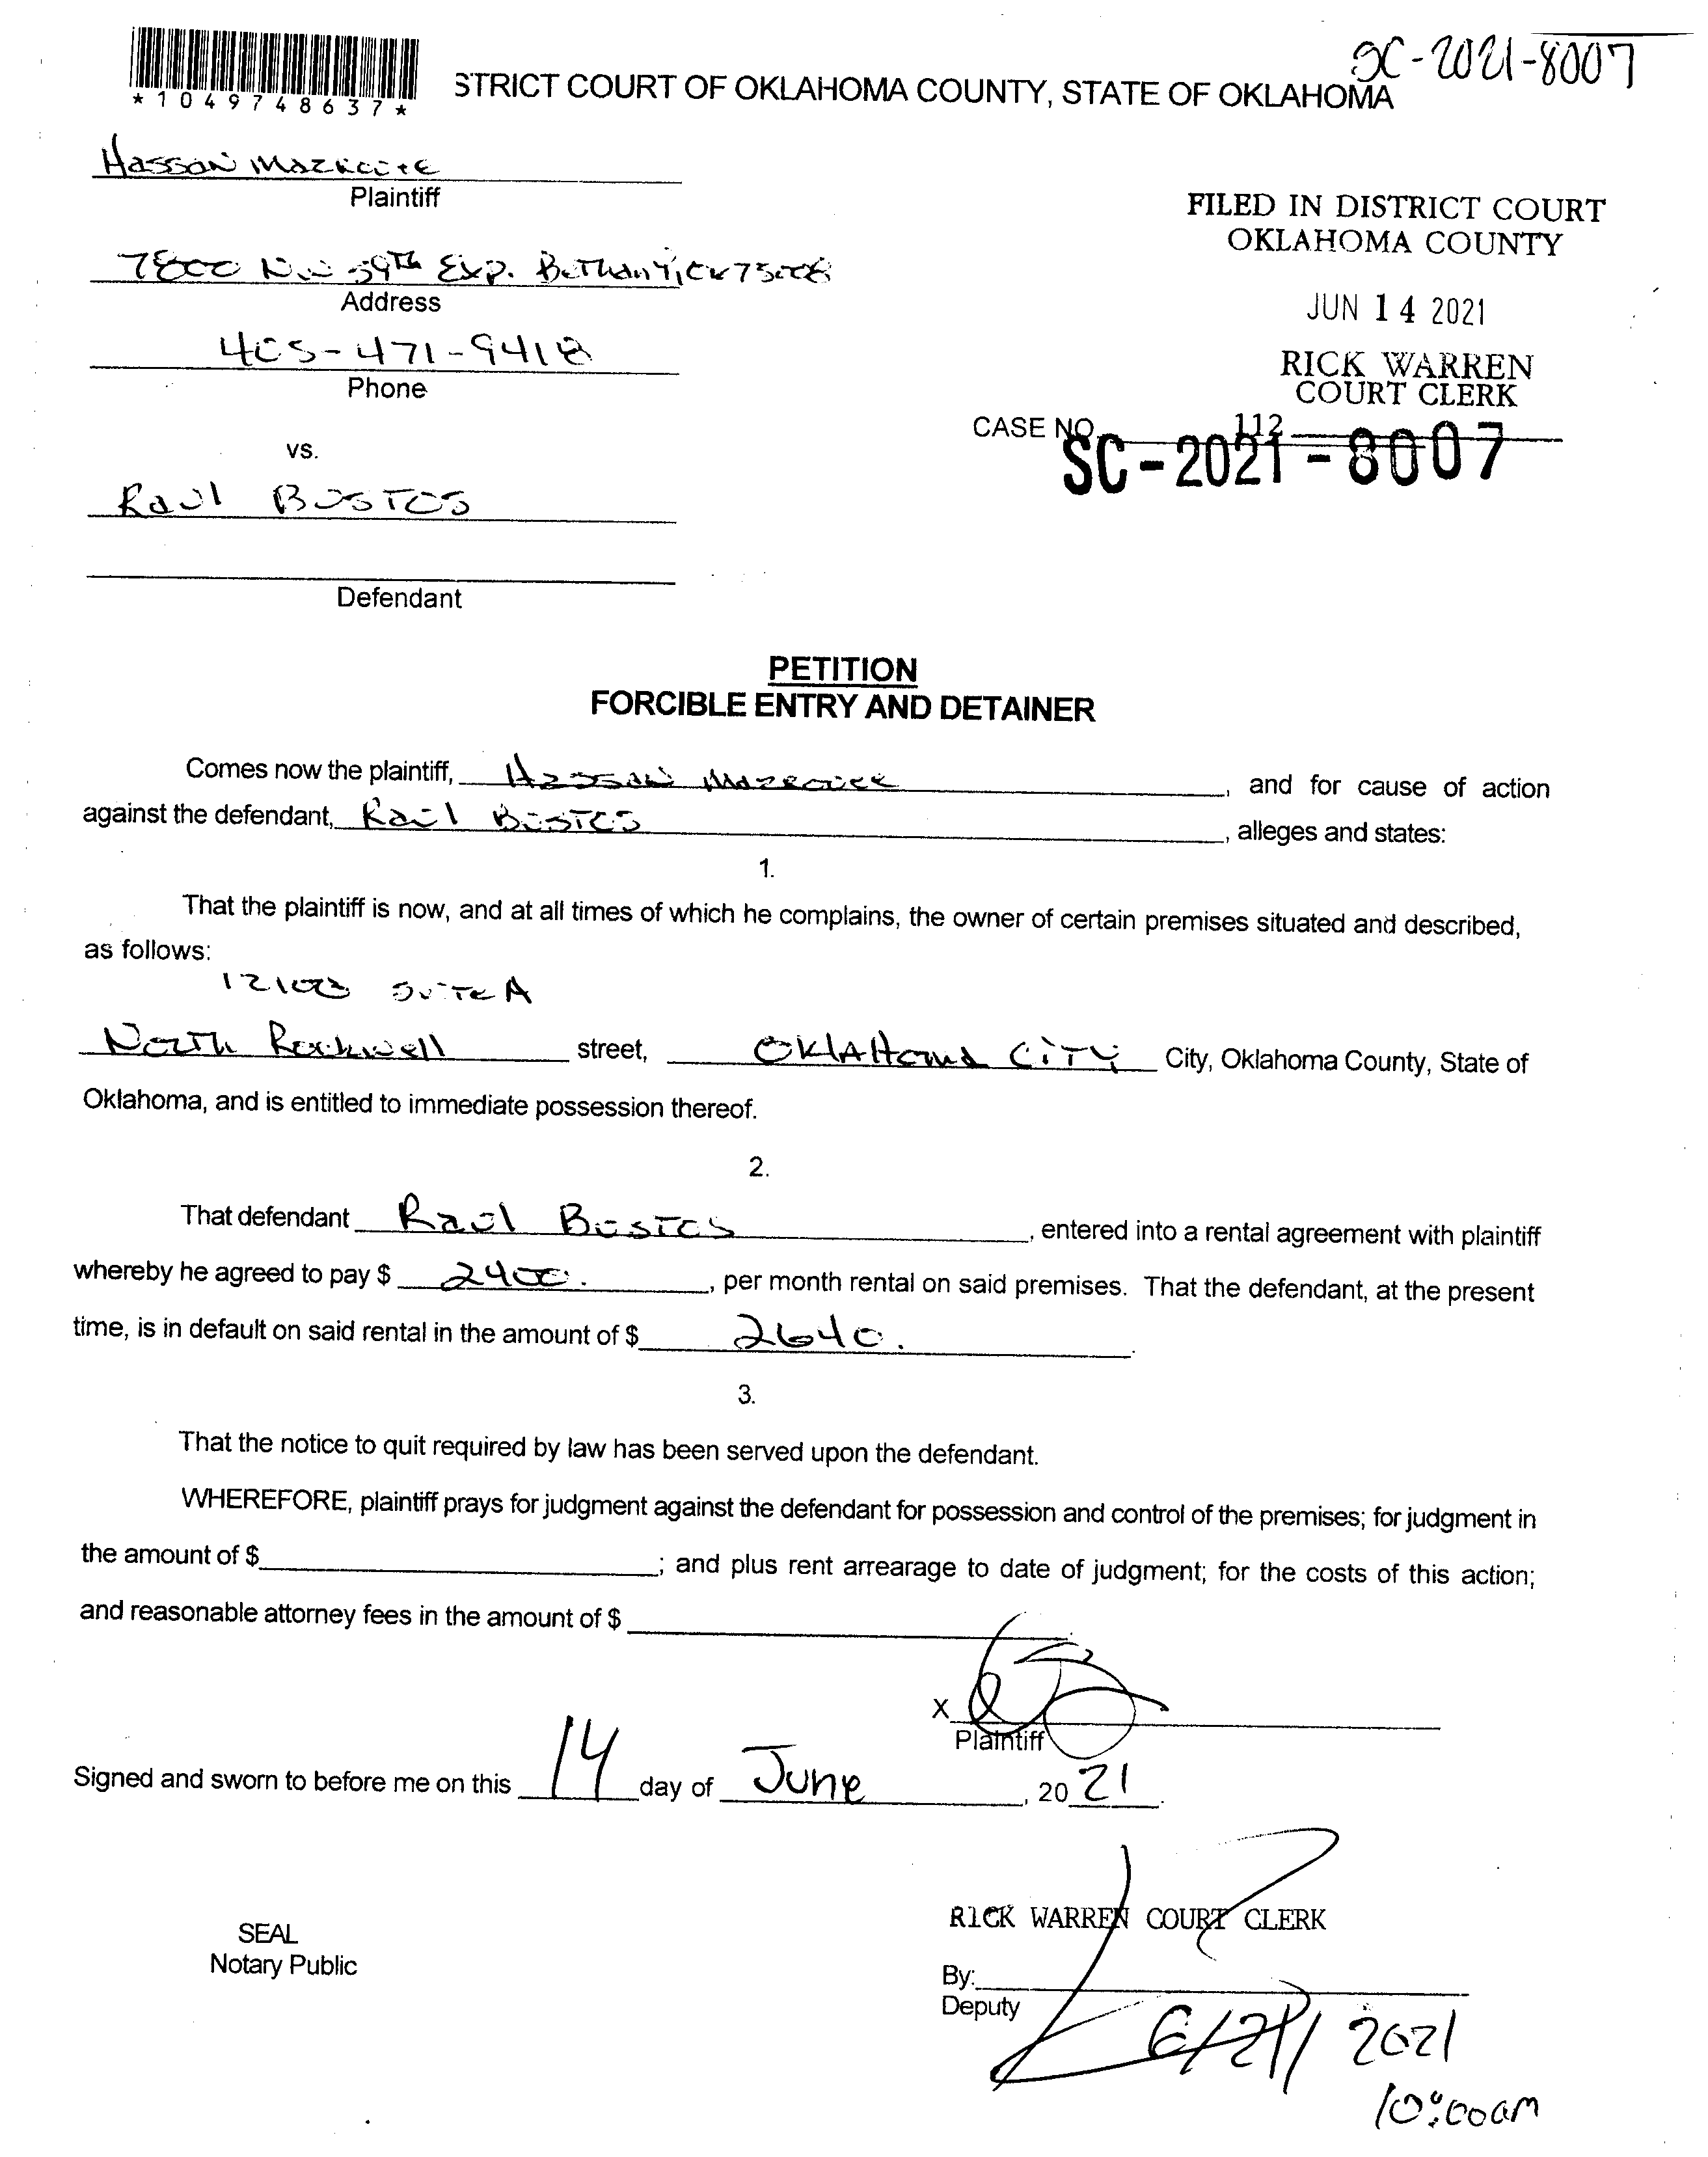 SC-2021-8007
*1049748637*
STRICT COURT OF OKLAHOMA COUNTY, STATE OF OKLAHOMA
Hassan
Plaintiff
FILED IN DISTRICT COURT
OKLAHOMA COUNTY
7800 N.W 39th Exp. Bethany, OK 73008
Address
JUN 14 2021
405-471-9418
Phone
RICK WARREN
COURT CLERK
112
CASE NO.
SC-2021-8007
vs.
Raul Bustos
Defendant
PETITION
FORCIBLE ENTRY AND DETAINER
Comes now the plaintiff, Hassan , and for cause of action
against the defendant, Raul Bustos , alleges and states:
1.
That the plaintiff is now, and at all times of which he complains, the owner of certain premises situated and described,
as follows:
12100 Suite A
North Rockwell street, Oklahoma City City, Oklahoma County, State of
Oklahoma, and is entitled to immediate possession thereof.
2.
That defendant Raul Bustos , entered into a rental agreement with plaintiff
whereby he agreed to pay $ 2400. , per month rental on said premises. That the defendant, at the present
time, is in default on said rental in the amount of $ 2640. .
3.
That the notice to quit required by law has been served upon the defendant.
WHEREFORE, plaintiff prays for judgment against the defendant for possession and control of the premises; for judgment in
the amount of $ ; and plus rent arrearage to date of judgment; for the costs of this action;
and reasonable attorney fees in the amount of $ .
X
Plaintiff
Signed and sworn to before me on this 14 day of June , 20 21 .
RICK WARREN COURT CLERK
SEAL
Notary Public
By:
Deputy
6/21/2021
10:00am